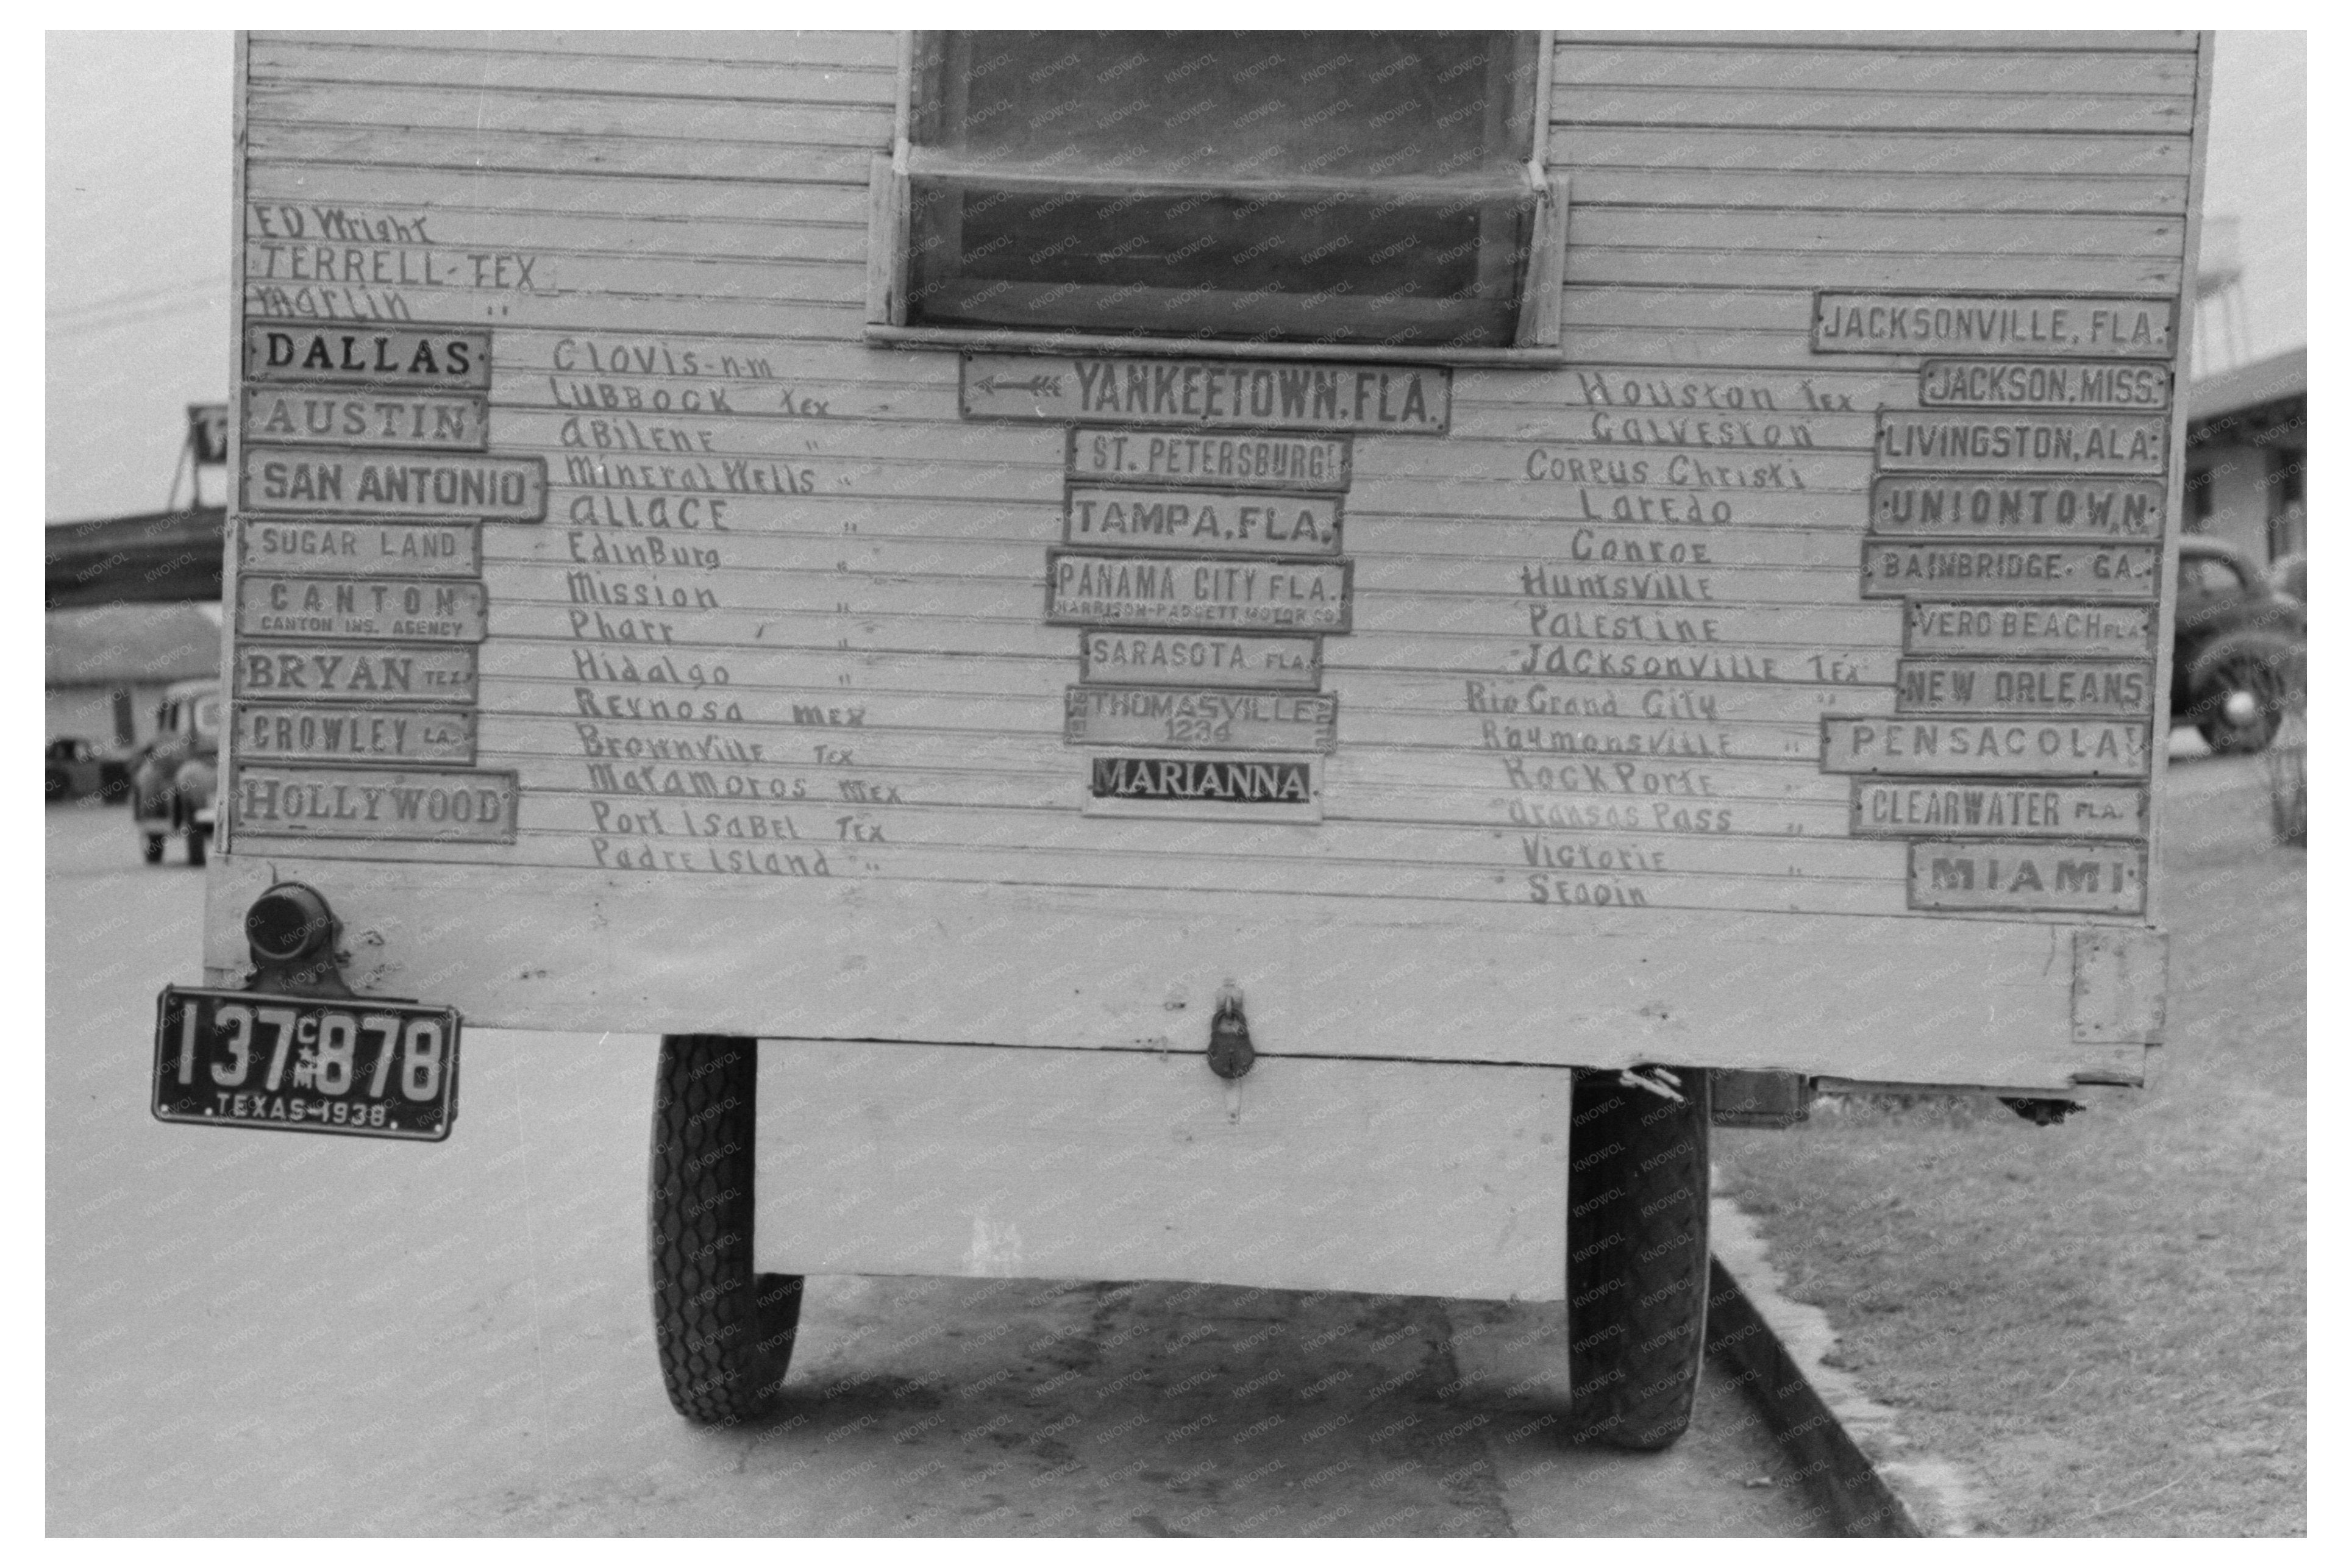 ED Wright
TERRELL-TEX
Marlin "
DALLAS
AUSTIN
SAN ANTONIO
SUGAR LAND
CANTON
CANTON INS. AGENCY
BRYAN TEX.
CROWLEY LA.
HOLLYWOOD
CLOVIS-n-m
LUBBOCK Tex
ABILENE "
Mineral Wells "
ALLACE "
EdinBurg "
Mission "
Pharr "
Hidalgo "
REYNOSA MEX
Brownville TEX
Matamoros MEX
Port ISABEL TEX
Padre Island "
YANKEETOWN, FLA.
ST. PETERSBURG
TAMPA, FLA.
PANAMA CITY FLA.
HARRISON-PADGETT MOTOR CO
SARASOTA FLA.
THOMASVILLE
1234
MARIANNA
Houston Tex
GALVESTON
CORPUS Christi
LarEdo
Conroe
Huntsville
PALESTINE
JACKSONVILLE TEX
Rio Grand City "
Raymonsville "
Rock Porte "
aransas Pass "
Victorie "
Seqoin "
JACKSONVILLE, FLA.
JACKSON, MISS.
LIVINGSTON, ALA.
UNIONTOWN
BAINBRIDGE, GA.
VERO BEACH FLA
NEW ORLEANS
PENSACOLA
CLEARWATER FLA.
MIAMI
137 C M 878
TEXAS-1938